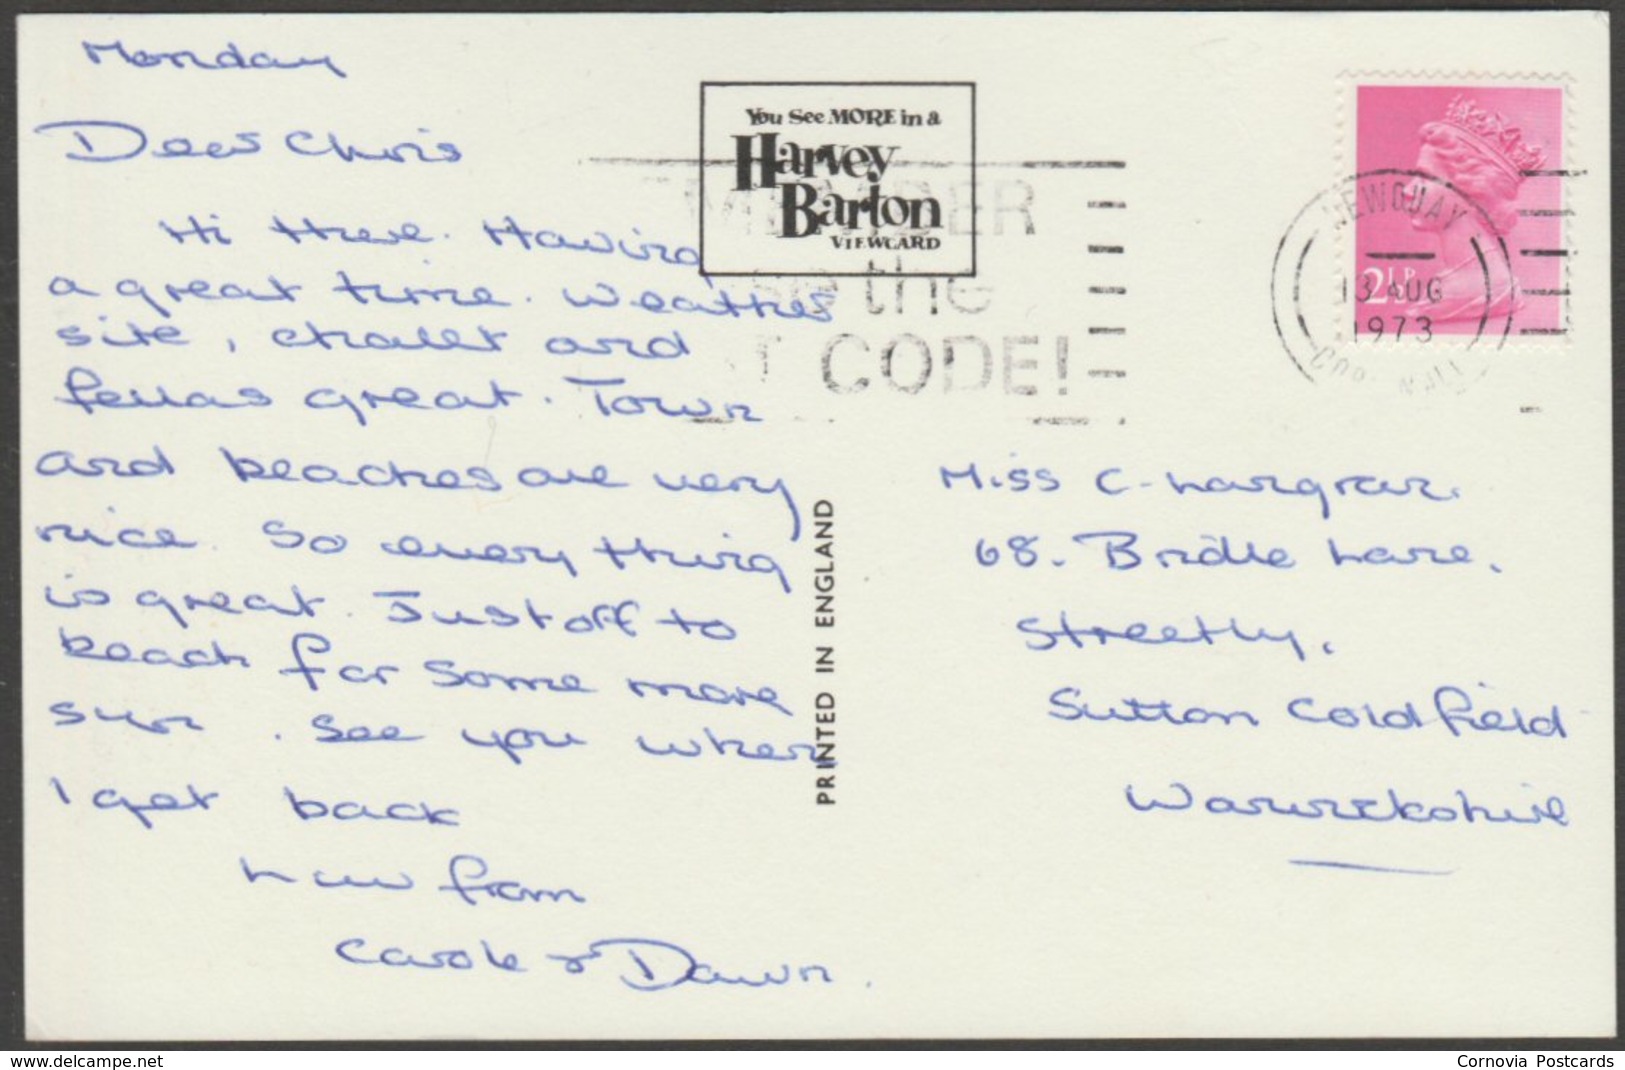 Monday
Dear Chris
Hi there. Having
a great time. Weather
site, chalet and
fellas great. Town
and beaches are very
nice. So every thing
is great. Just off to
beach for some more
sun. See you when
I get back
Luv from
Carole & Dawn.
You See MORE in a
Harvey
Barton
VIEWCARD
the
CODE!
PRINTED IN ENGLAND
2½P
NEWQUAY
13 AUG
1973
CORNWALL
Miss C.
68. Bridle Lane.
Streetly,
Sutton Coldfield
Warwickshire
www.delcampe.net
Cornovia Postcards